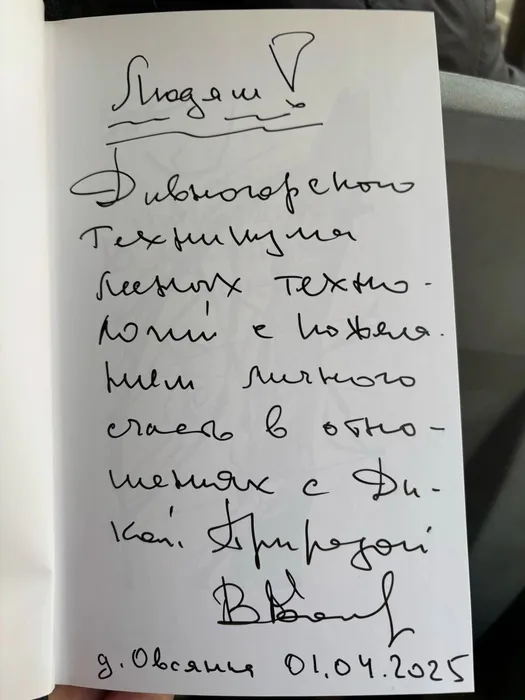 Людям!
Дивногорского
Техникума
лесных техно-
логий с пожела-
нием личного
счастья в отно-
шениях с Ди-
кой Природой
д. Овсянка 01.04.2025